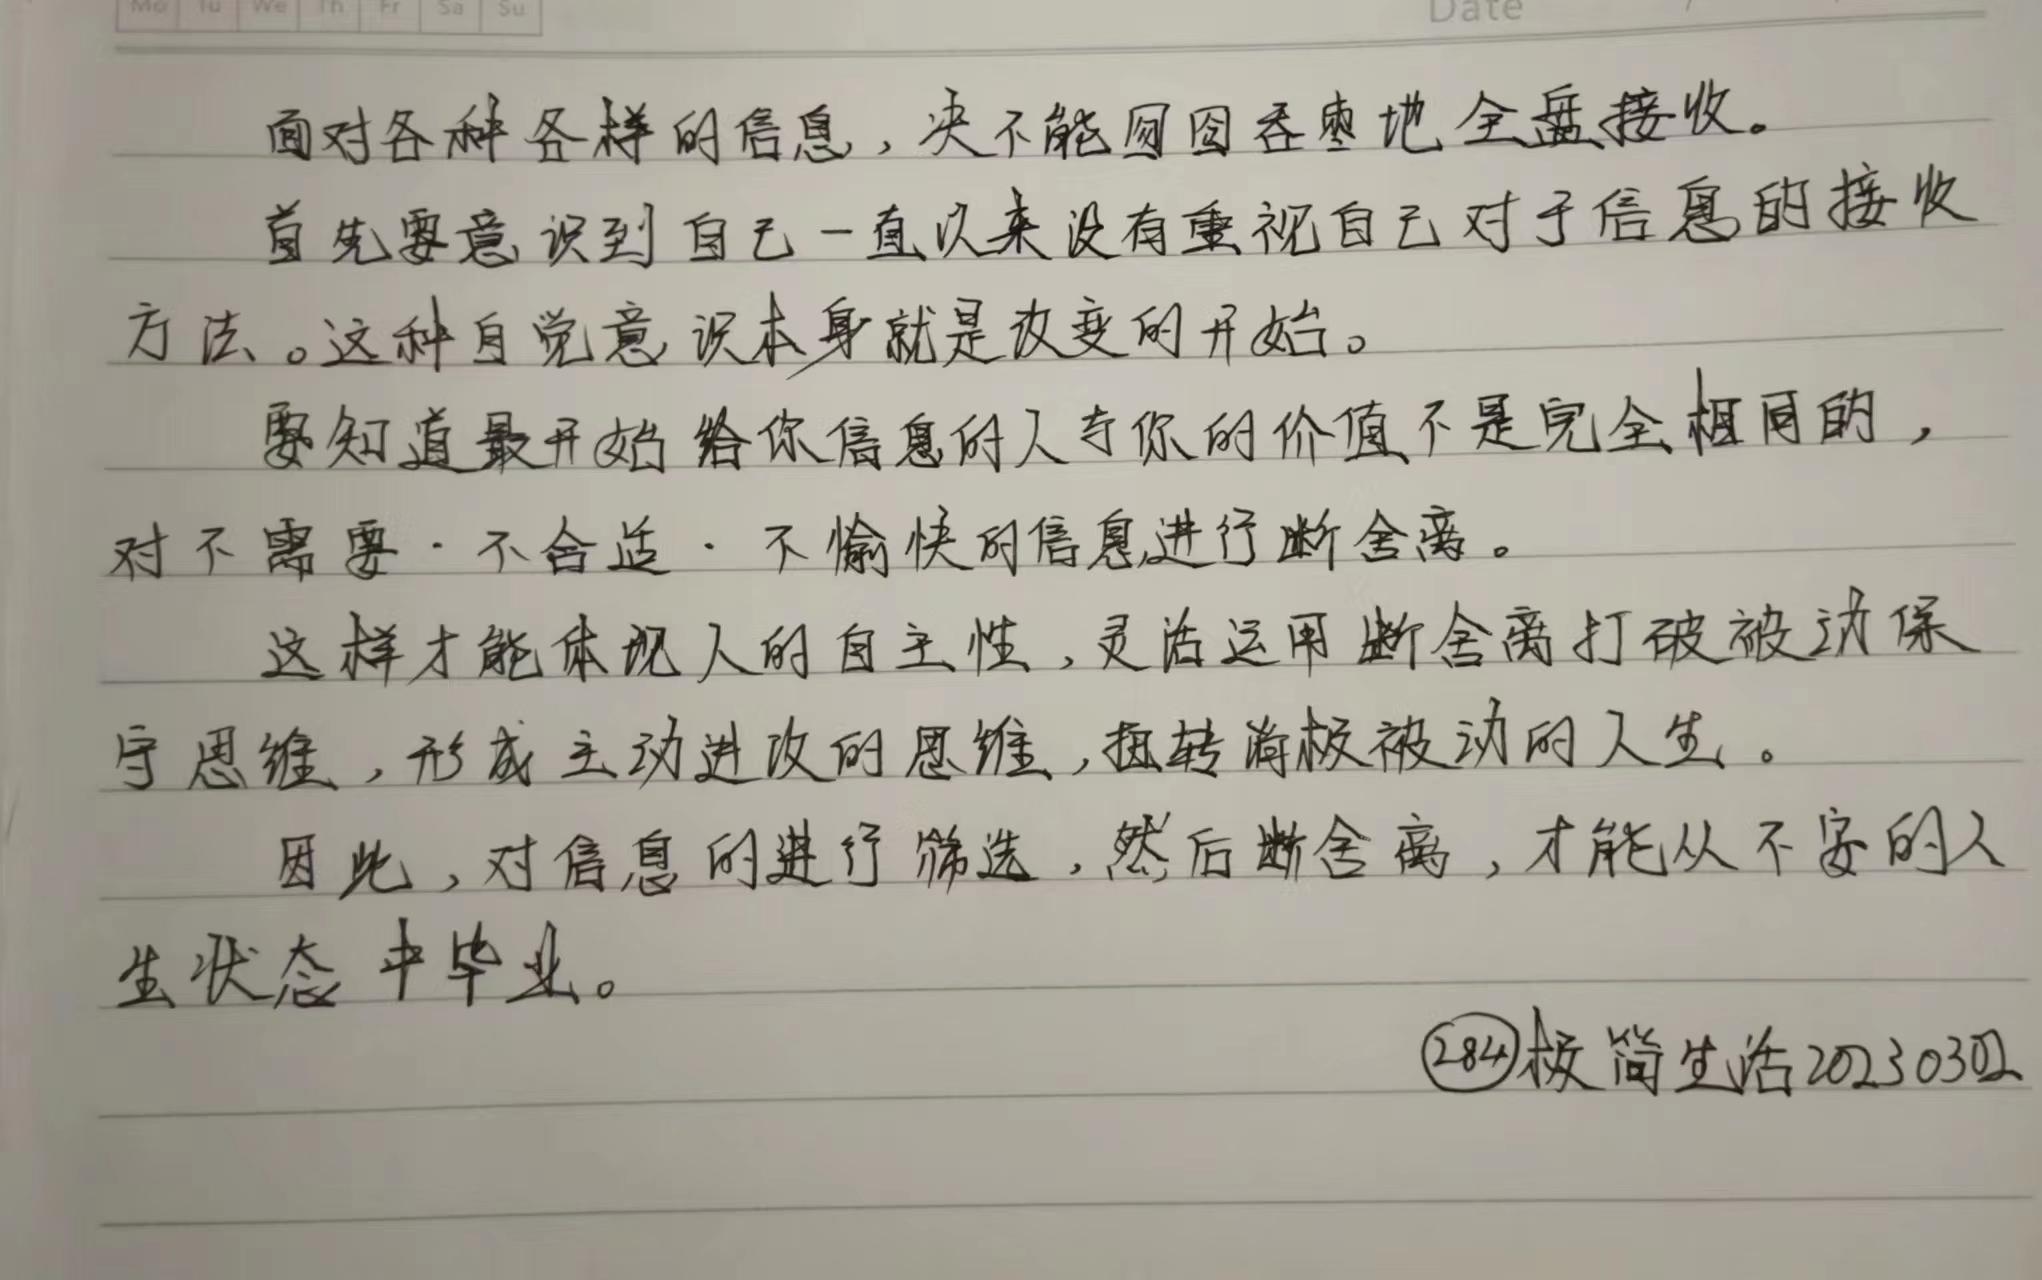 Mo Tu We Th Fr Sa Su
Date
面对各种各样的信息，决不能囫囵吞枣地全盘接收。
首先要意识到自己一直以来没有重视自己对于信息的接收
方法。这种自觉意识本身就是改变的开始。
要知道最开始给你信息的人与你的价值不是完全相同的，
对不需要·不合适·不愉快的信息进行断舍离。
这样才能体现人的自主性，灵活运用断舍离打破被动保
守思维，形成主动进攻的思维，扭转消极被动的人生。
因此，对信息的进行筛选，然后断舍离，才能从不安的人
生状态中毕业。
284 极简生活20230302